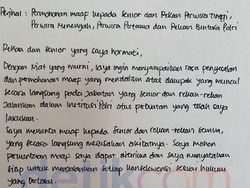 Perihal : Permohonan maaf kepada Senior dan Rekan Perwira Tinggi,
Perwira Menengah, Perwira Pertama dan Rekan Bintara Polri
Rekan dan Senior yang saya hormati,
Dengan niat yang murni, saya ingin menyampaikan rasa penyesalan
dan permohonan maaf yang mendalam atas dampak yang muncul
secara langsung pada jabatan yang senior dan rekan-rekan
jalankan dalam institusi Polri atas perbuatan yang telah saya
lakukan.
Saya meminta maaf kepada senior dan rekan-rekan semua,
yang secara langsung merasakan akibatnya. Saya mohon
permintaan maaf saya dapat diterima dan saya menyatakan
siap untuk menjalankan setiap konsekuensi sesuai hukum
yang berlaku.